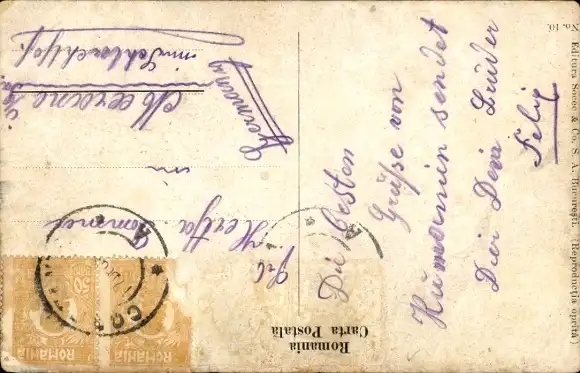 No. 10. Editura Socec & Co., S. A., Bucureşti. (Reproducţia oprită)
Romania
Carta Postala
Die besten
Grüße von
Rumänien sendet
Dir Dein Bruder
Felix
Frl.
Hertha
in
Meerane
Germany
ROMANIA
50
ROMANIA